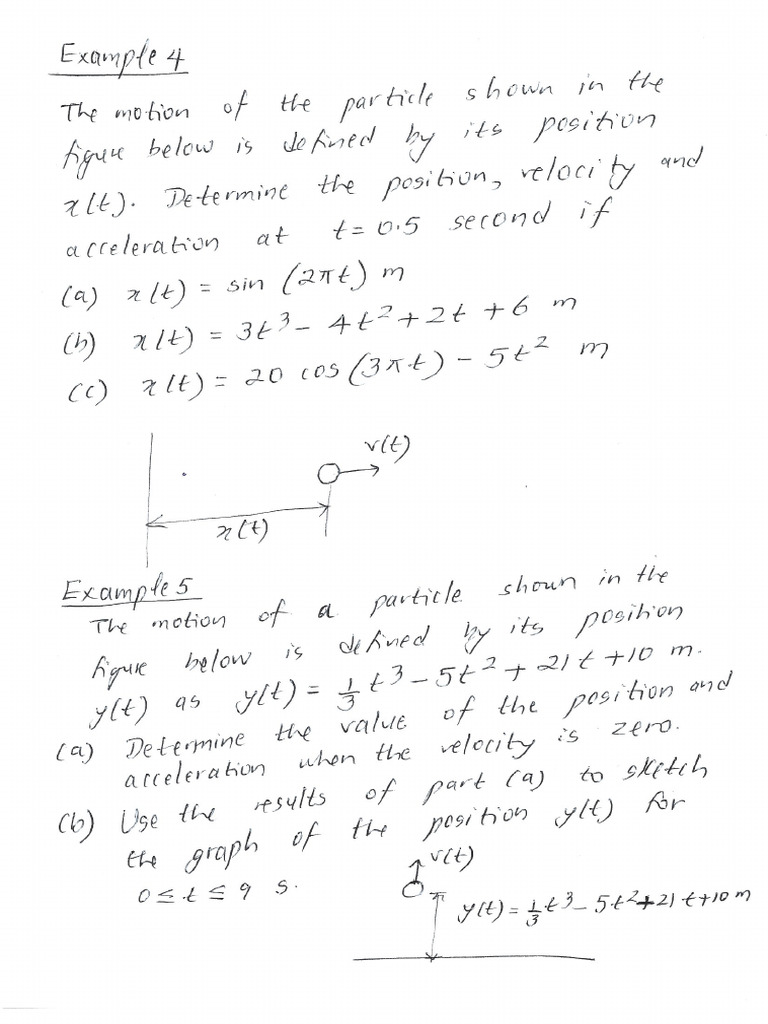 Example 4
The motion of the particle shown in the
figure below is defined by its position
x(t). Determine the position, velocity and
acceleration at t = 0.5 second if
(a) x(t) = sin (2πt) m
(b) x(t) = 3t³ - 4t² + 2t + 6 m
(c) x(t) = 20 cos (3πt) - 5t² m
v(t)
x(t)
Example 5
The motion of a particle shown in the
figure below is defined by its position
y(t) as y(t) = 1/3 t³ - 5t² + 21t + 10 m.
(a) Determine the value of the position and
acceleration when the velocity is zero.
(b) Use the results of part (a) to sketch
the graph of the position y(t) for
0 ≤ t ≤ 9 s.
v(t)
y(t) = 1/3 t³ - 5t² + 21t + 10 m